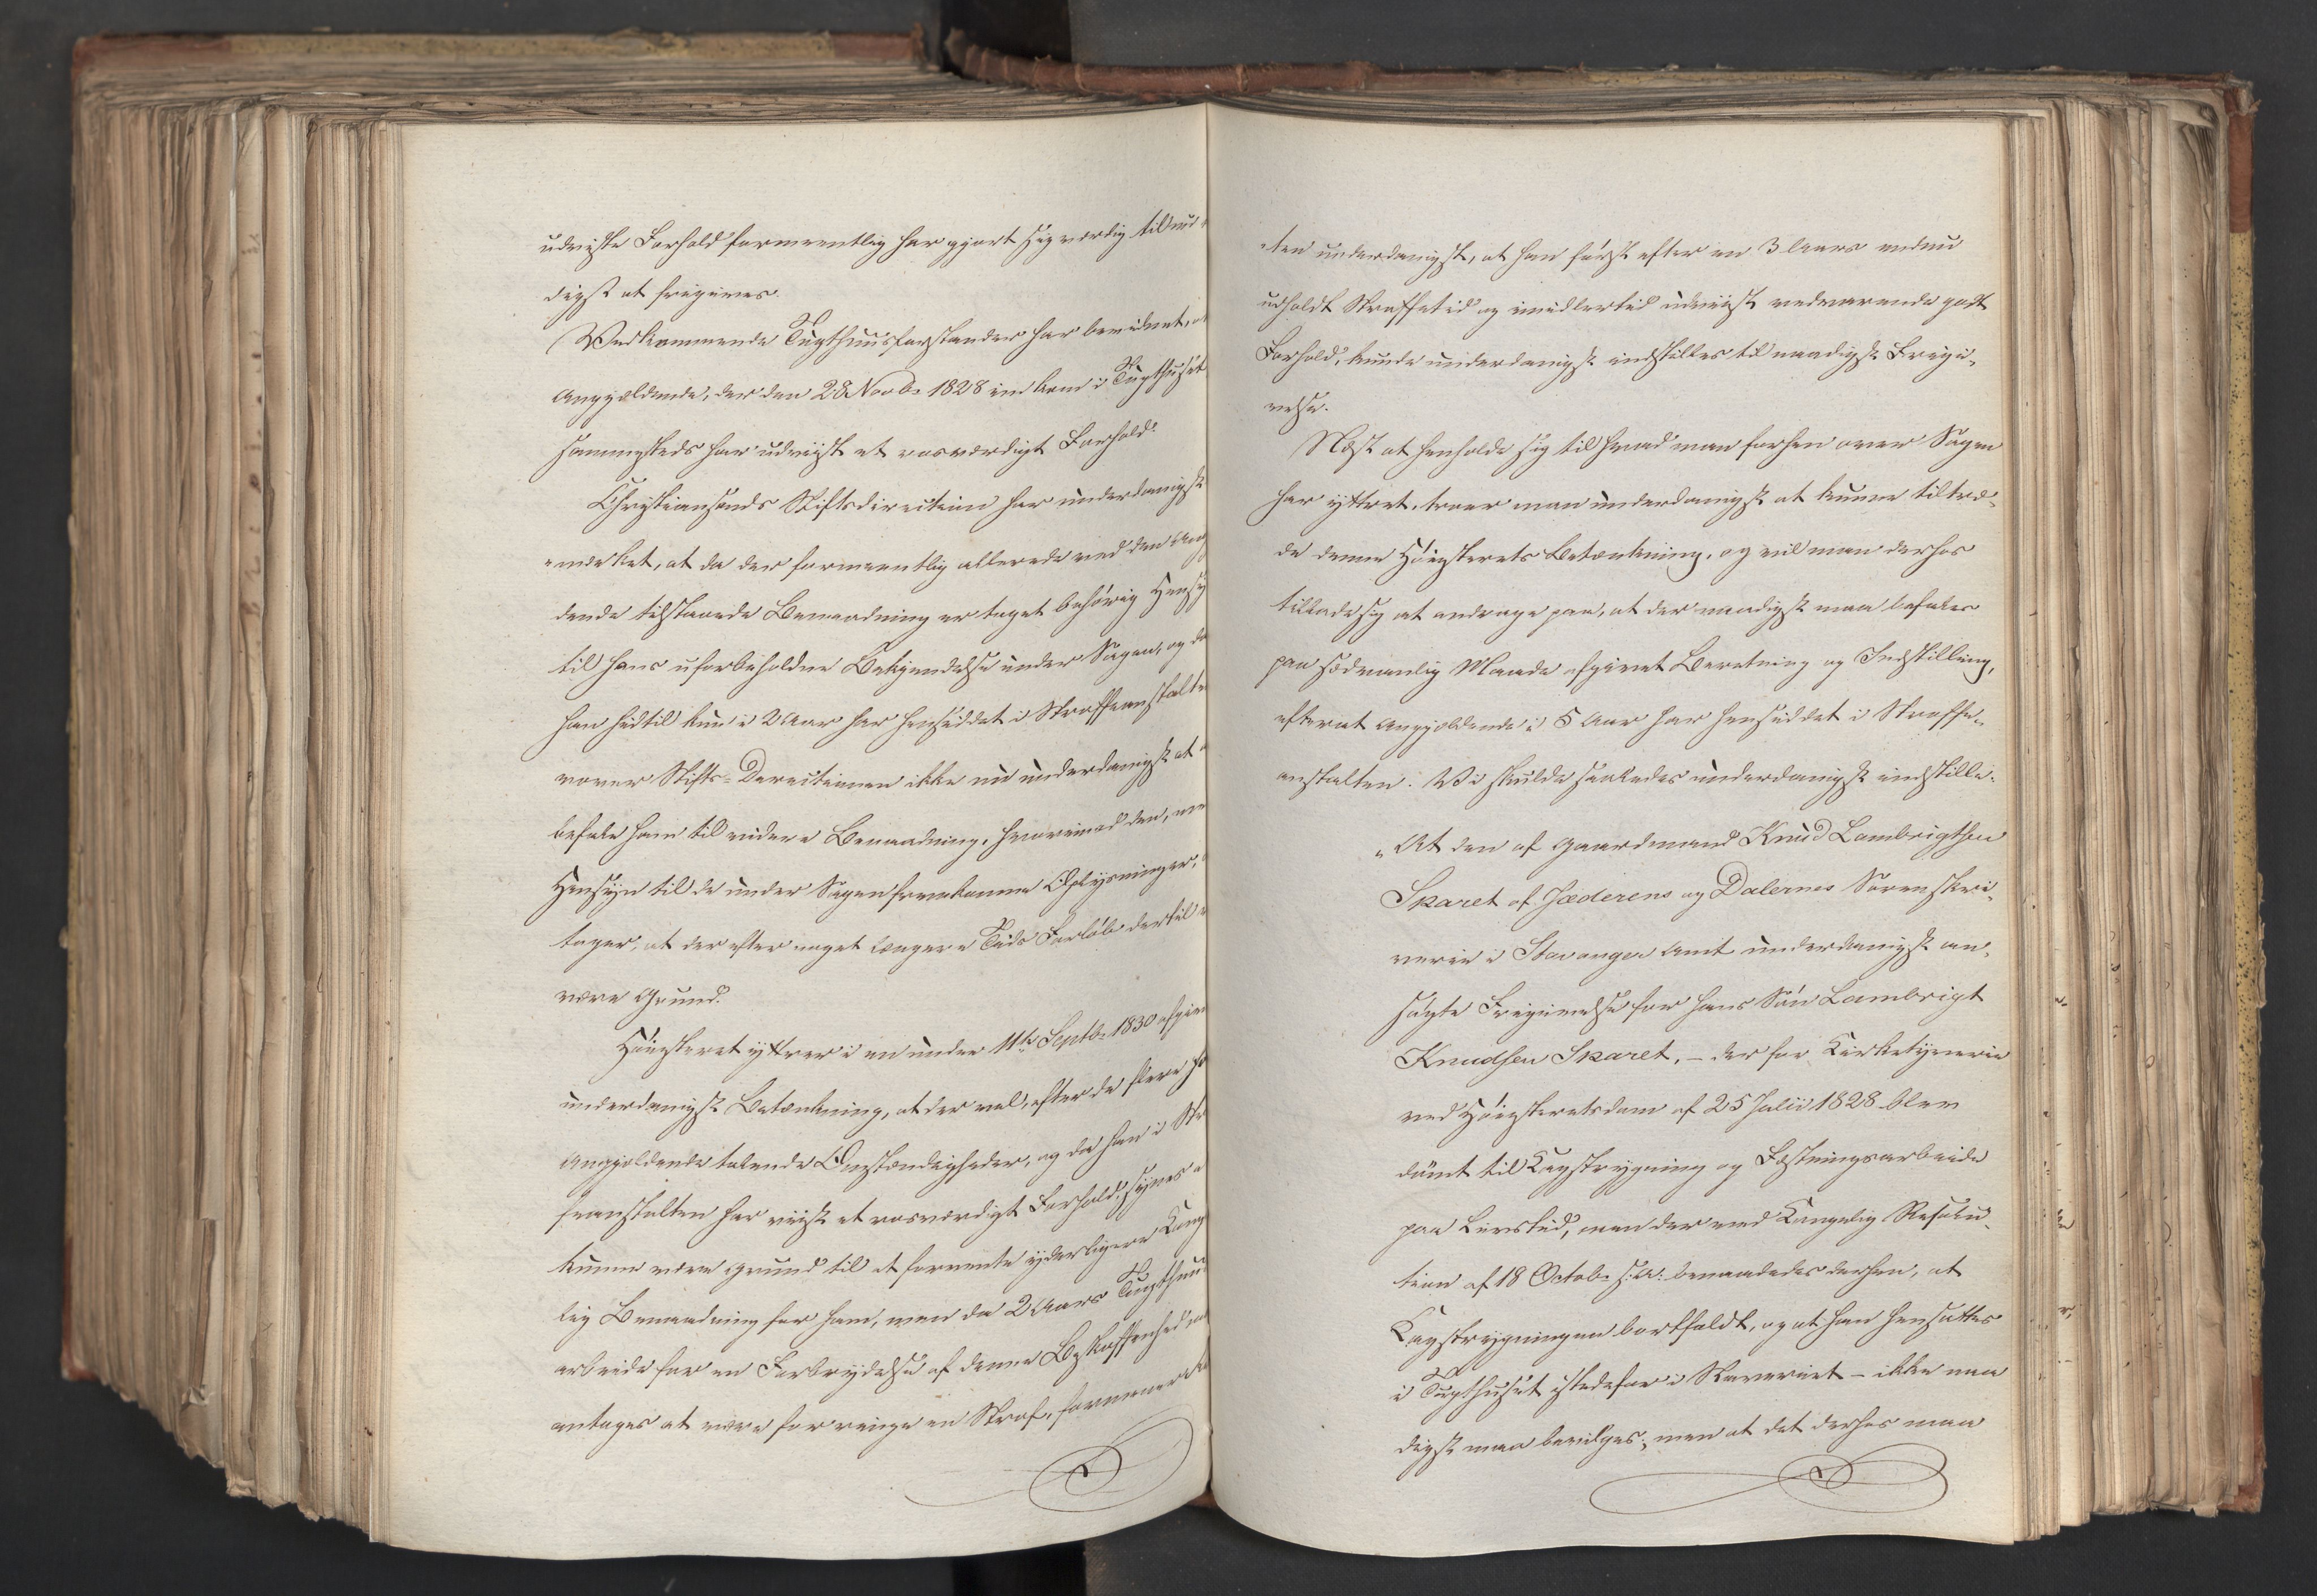 udviste Forhold formeentlig har gjort sig værdig til naa-
digst at frigives.
Vedkommende Tugthuusforstander har bevidnet, at
Angjeldende, der den 28 Novbr 1828 indkom i Tugthuset
sammesteds har udviist et roesværdigt Forhold.
Christiansands Stiftsdirection har underdanigst
-mærket, at da der formeentlig allerede ved den Ang
dende tilstaaede Benaadning er taget behørig Hensy
til hans uforbeholdne Bekjendelse under Sagen, og da
han hidtil kun i 2 Aar har hensiddet i Straffeanstalte
vover Stifts-Directionen ikke nu underdanigst at
befale ham til videre Benaadning, hvorimod den, me
Hensyn til de under Sagen fremkomne Oplysninger,
tager, at der efter noget længere Tids Forløb dertil
være Grund.
Höiesteret yttrer i en under 11te Septbr 1830 afgive
underdanigst Betænkning, at der vel, efter de flere for
Angjeldende talende Omstændigheder, og da han i Str
feanstalten har viist et roesværdigt Forhold, synes a
kunne være Grund til at forvente yderligere Konge
lig Benaadning for ham, men da 2 Aars Tugthuu
arbeide for en Forbrydelse af denne Beskaffenhed m
antages at være for ringe en Straf, formener R
-ten underdanigst, at han först efter en 3 Aars endnu
udholdt Straffetid og imidlertid udviist vedvarende godt
Forhold, kunde underdanigst indstilles til naadigst Frigi-
velse.
Næst at henholde sig til hvad man forhen over Sagen
har yttret, troer man underdanigst at kunne tiltræ-
de denne Höiesterets Betænkning, og vil man derhos
tillade sig at andrage paa, at der naadigst maa befales
paa sædvanlig Maade afgivet Beretning og Indstilling,
efterat Angjeldende i 5 Aar har hensiddet i Straffe-
anstalten. Vi skulde saaledes underdanigst indstille:
"At den af Gaardmand Knud Lambrigtsen
Skaret af Jæderens og Dalernes Sorenskri-
verie i Stavanger Amt underdanigst an-
søgte Frigivelse for hans Sön Lambrigt
Knudsen Skaret, – der for Kirketyverie
ved Höiesteretsdom af 25 Julii 1828 blev
dömt til Kagstrygning og Fæstningsarbeide
paa Livstid, men der ved Kongelig Resolu-
tion af 18 Octobr s: A: benaadedes derhen, at
Kagstrygningen bortfaldt, og at han hensattes
i Tugthuset istedetfor i Slaveriet – ikke naa
digst maa bevilges; men at det derhos maa